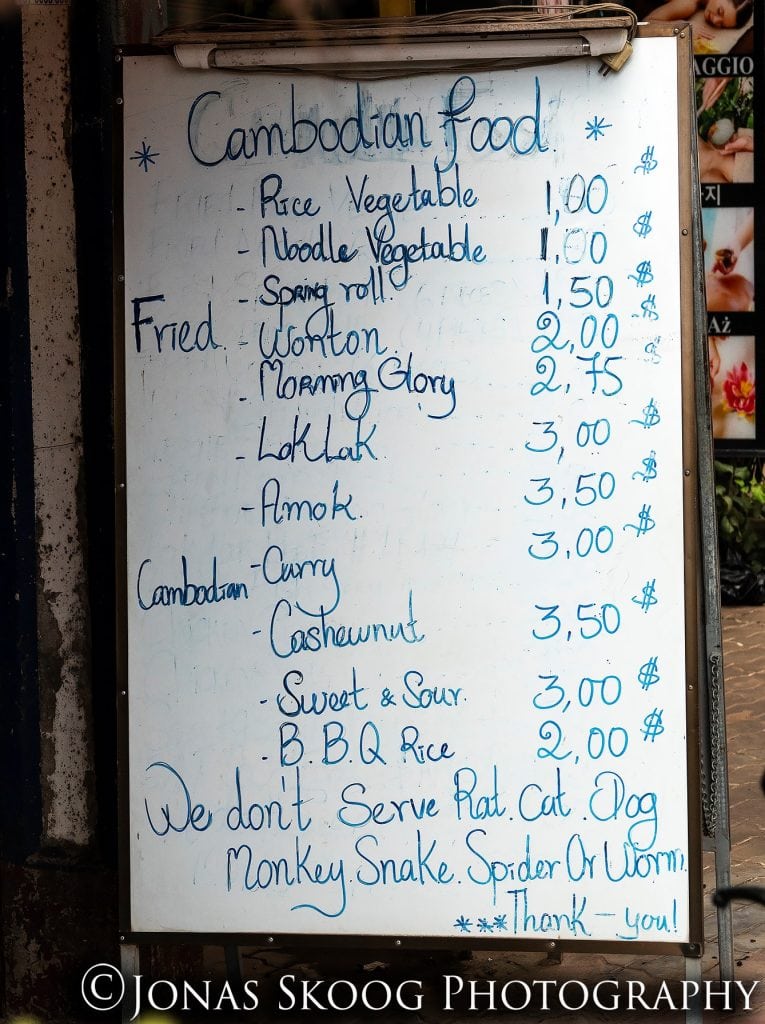 * Cambodian Food *
- Rice Vegetable 1,00 $
- Noodle Vegetable 1.00 $
- Spring roll. 1,50 $
Fried - Wonton. 2,00 $
- Morning Glory 2,75 $
- LokLak 3,00 $
- Amok. 3,50 $
Cambodian - Curry 3,00 $
- Cashewnut 3,50 $
- Sweet & Sour. 3,00 $
- B.B.Q Rice 2,00 $
We don't Serve Rat. Cat. Dog
Monkey. Snake. Spider Or Worm.
*** Thank - you!
AGGIO
지
AŻ
©JONAS SKOOG PHOTOGRAPHY